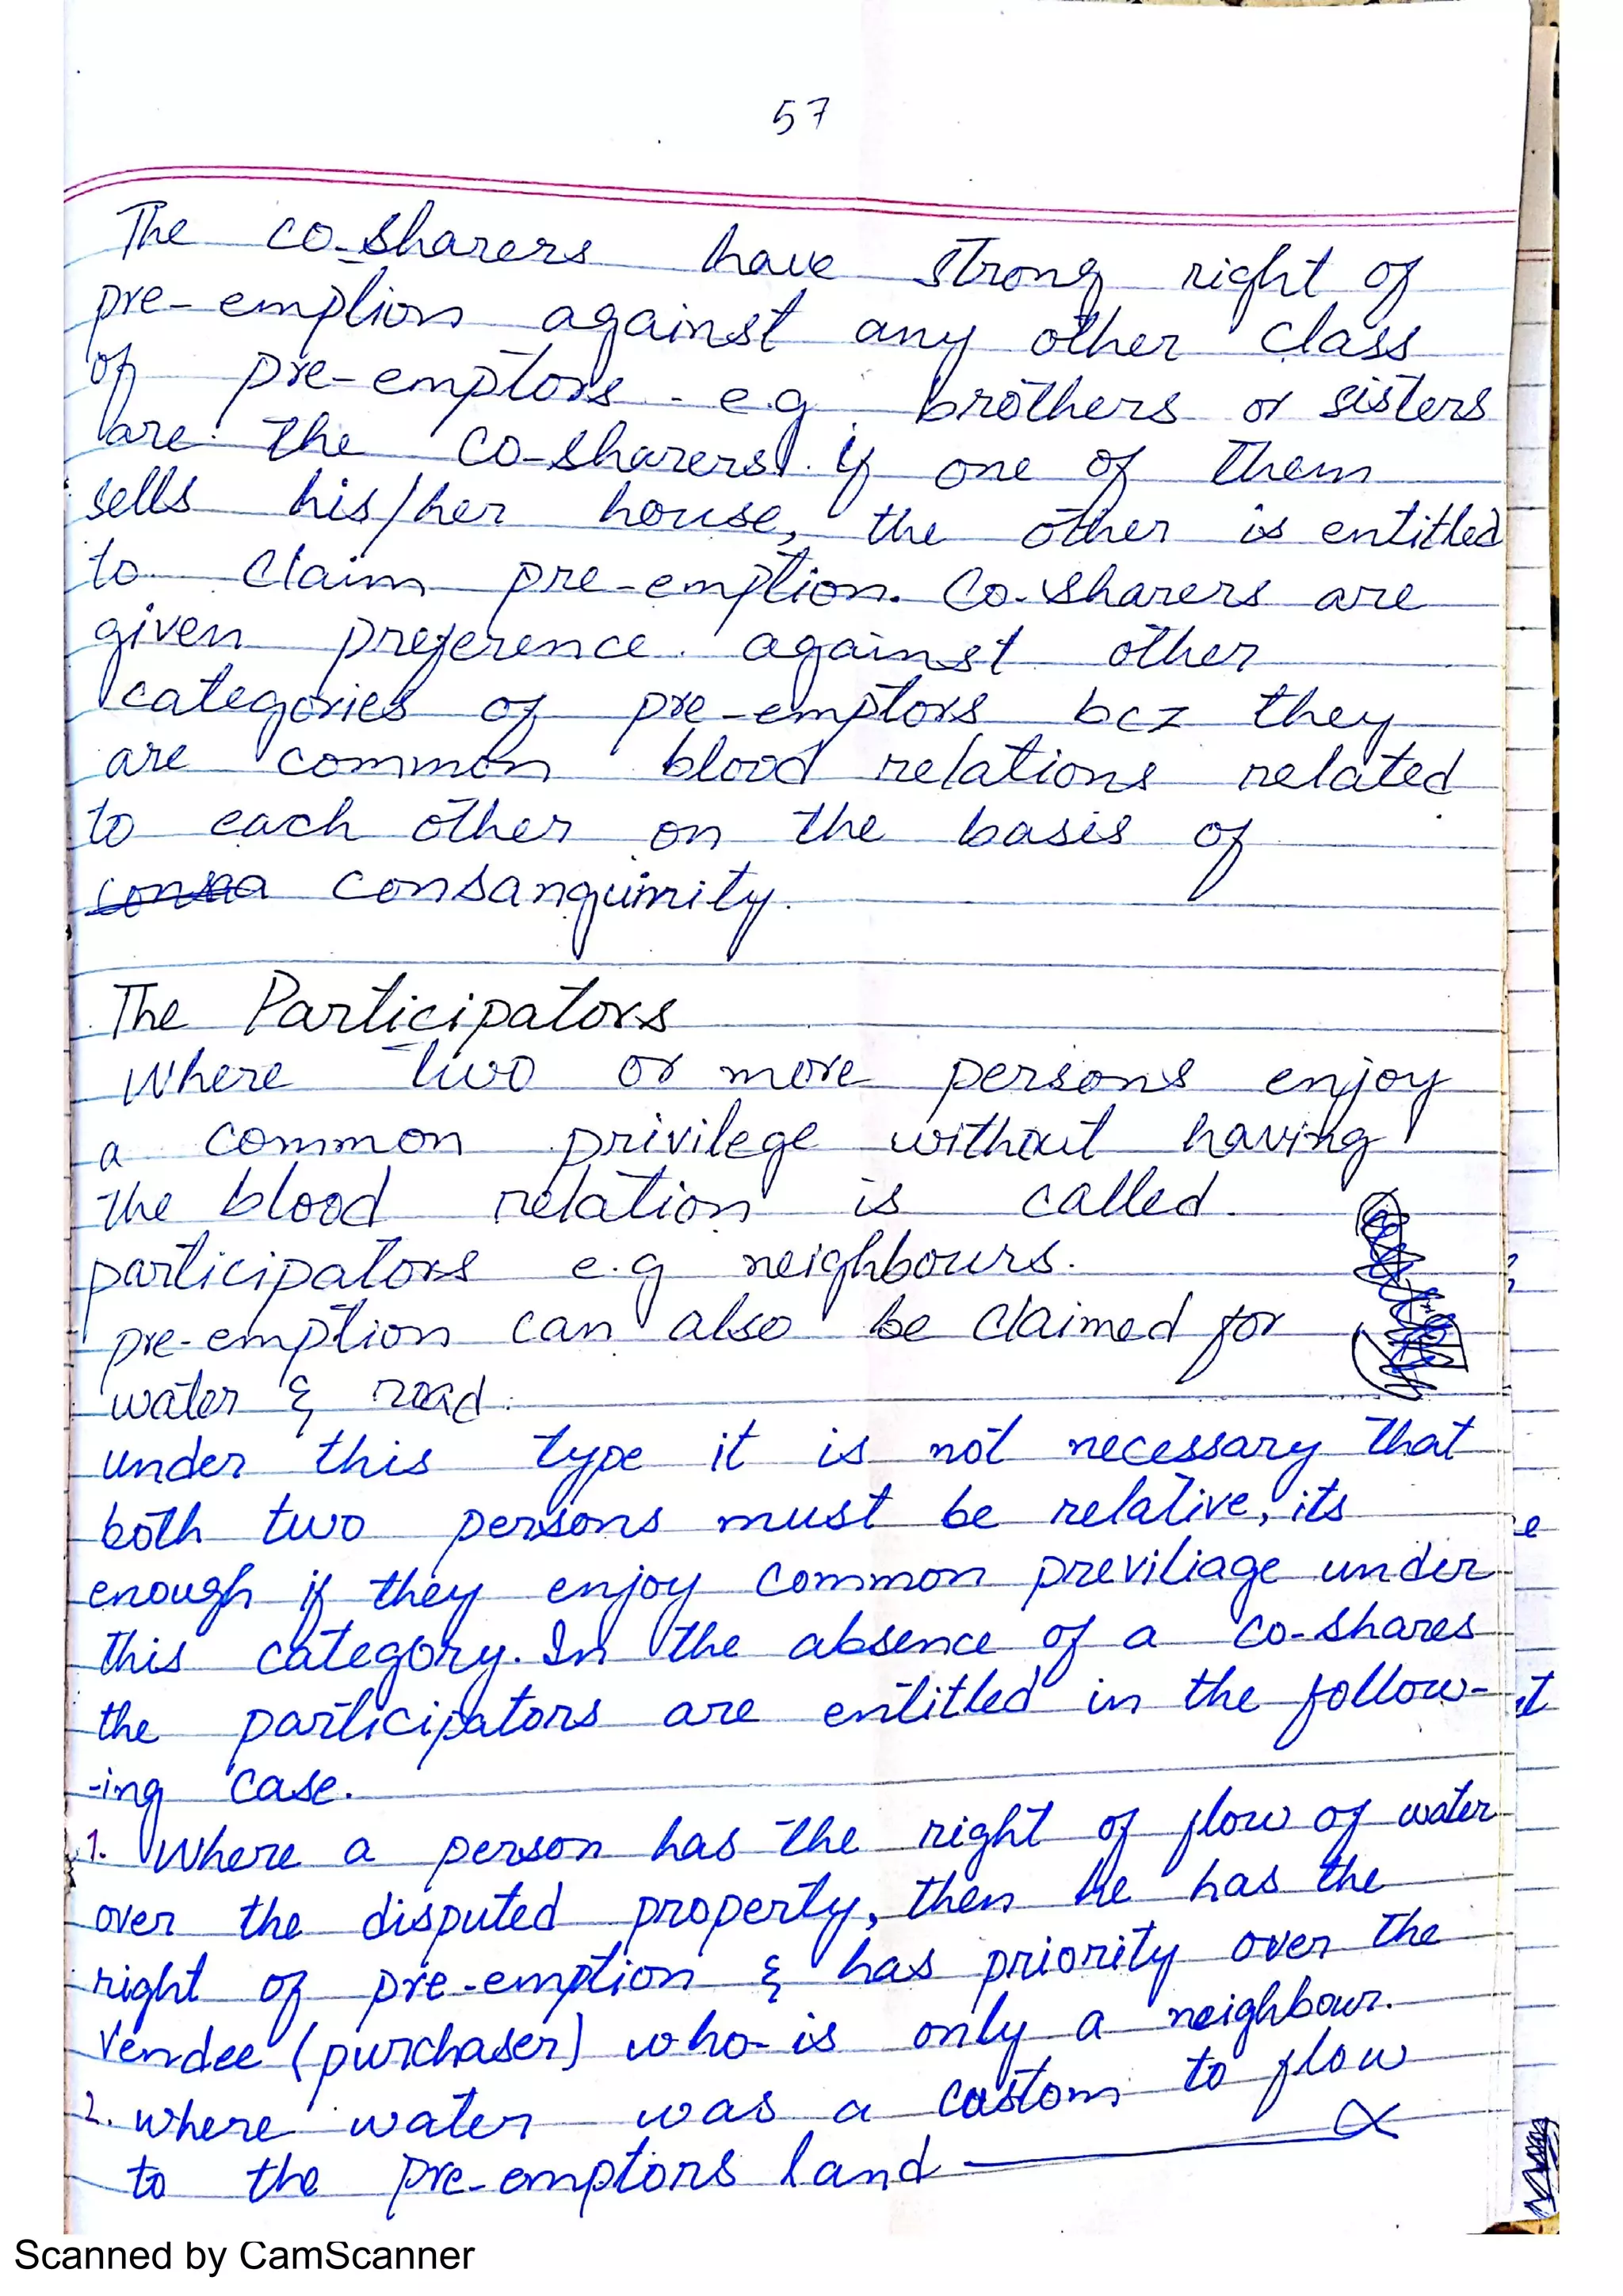 57
The co-sharers have strong right of
pre-emption against any other class
of pre-emptors. e.g. brothers or sisters
are the co-sharers. if one of them
sells his/her house, the other is entitled
to claim pre-emption. Co-sharers are
given preference against other
categories of pre-emptors bcz they
are common blood relations related
to each other on the basis of
consanguinity.
The Participators
Where two or more persons enjoy
a common privilege without having
the blood relation is called
participators e.g neighbours.
pre-emption can also be claimed for
water & road.
under this type it is not necessary that
both two persons must be relative, its
enough if they enjoy common previliage under
this category. In the absence of a co-shares
the participators are entitled in the follow-
-ing case.
1. Where a person has the right of flow of water
over the disputed property, then he has the
right of pre-emption & has priority over the
vendee (purchaser) who is only a neighbour.
2. where water was a custom to flow
to the pre-emptors land
Scanned by CamScanner